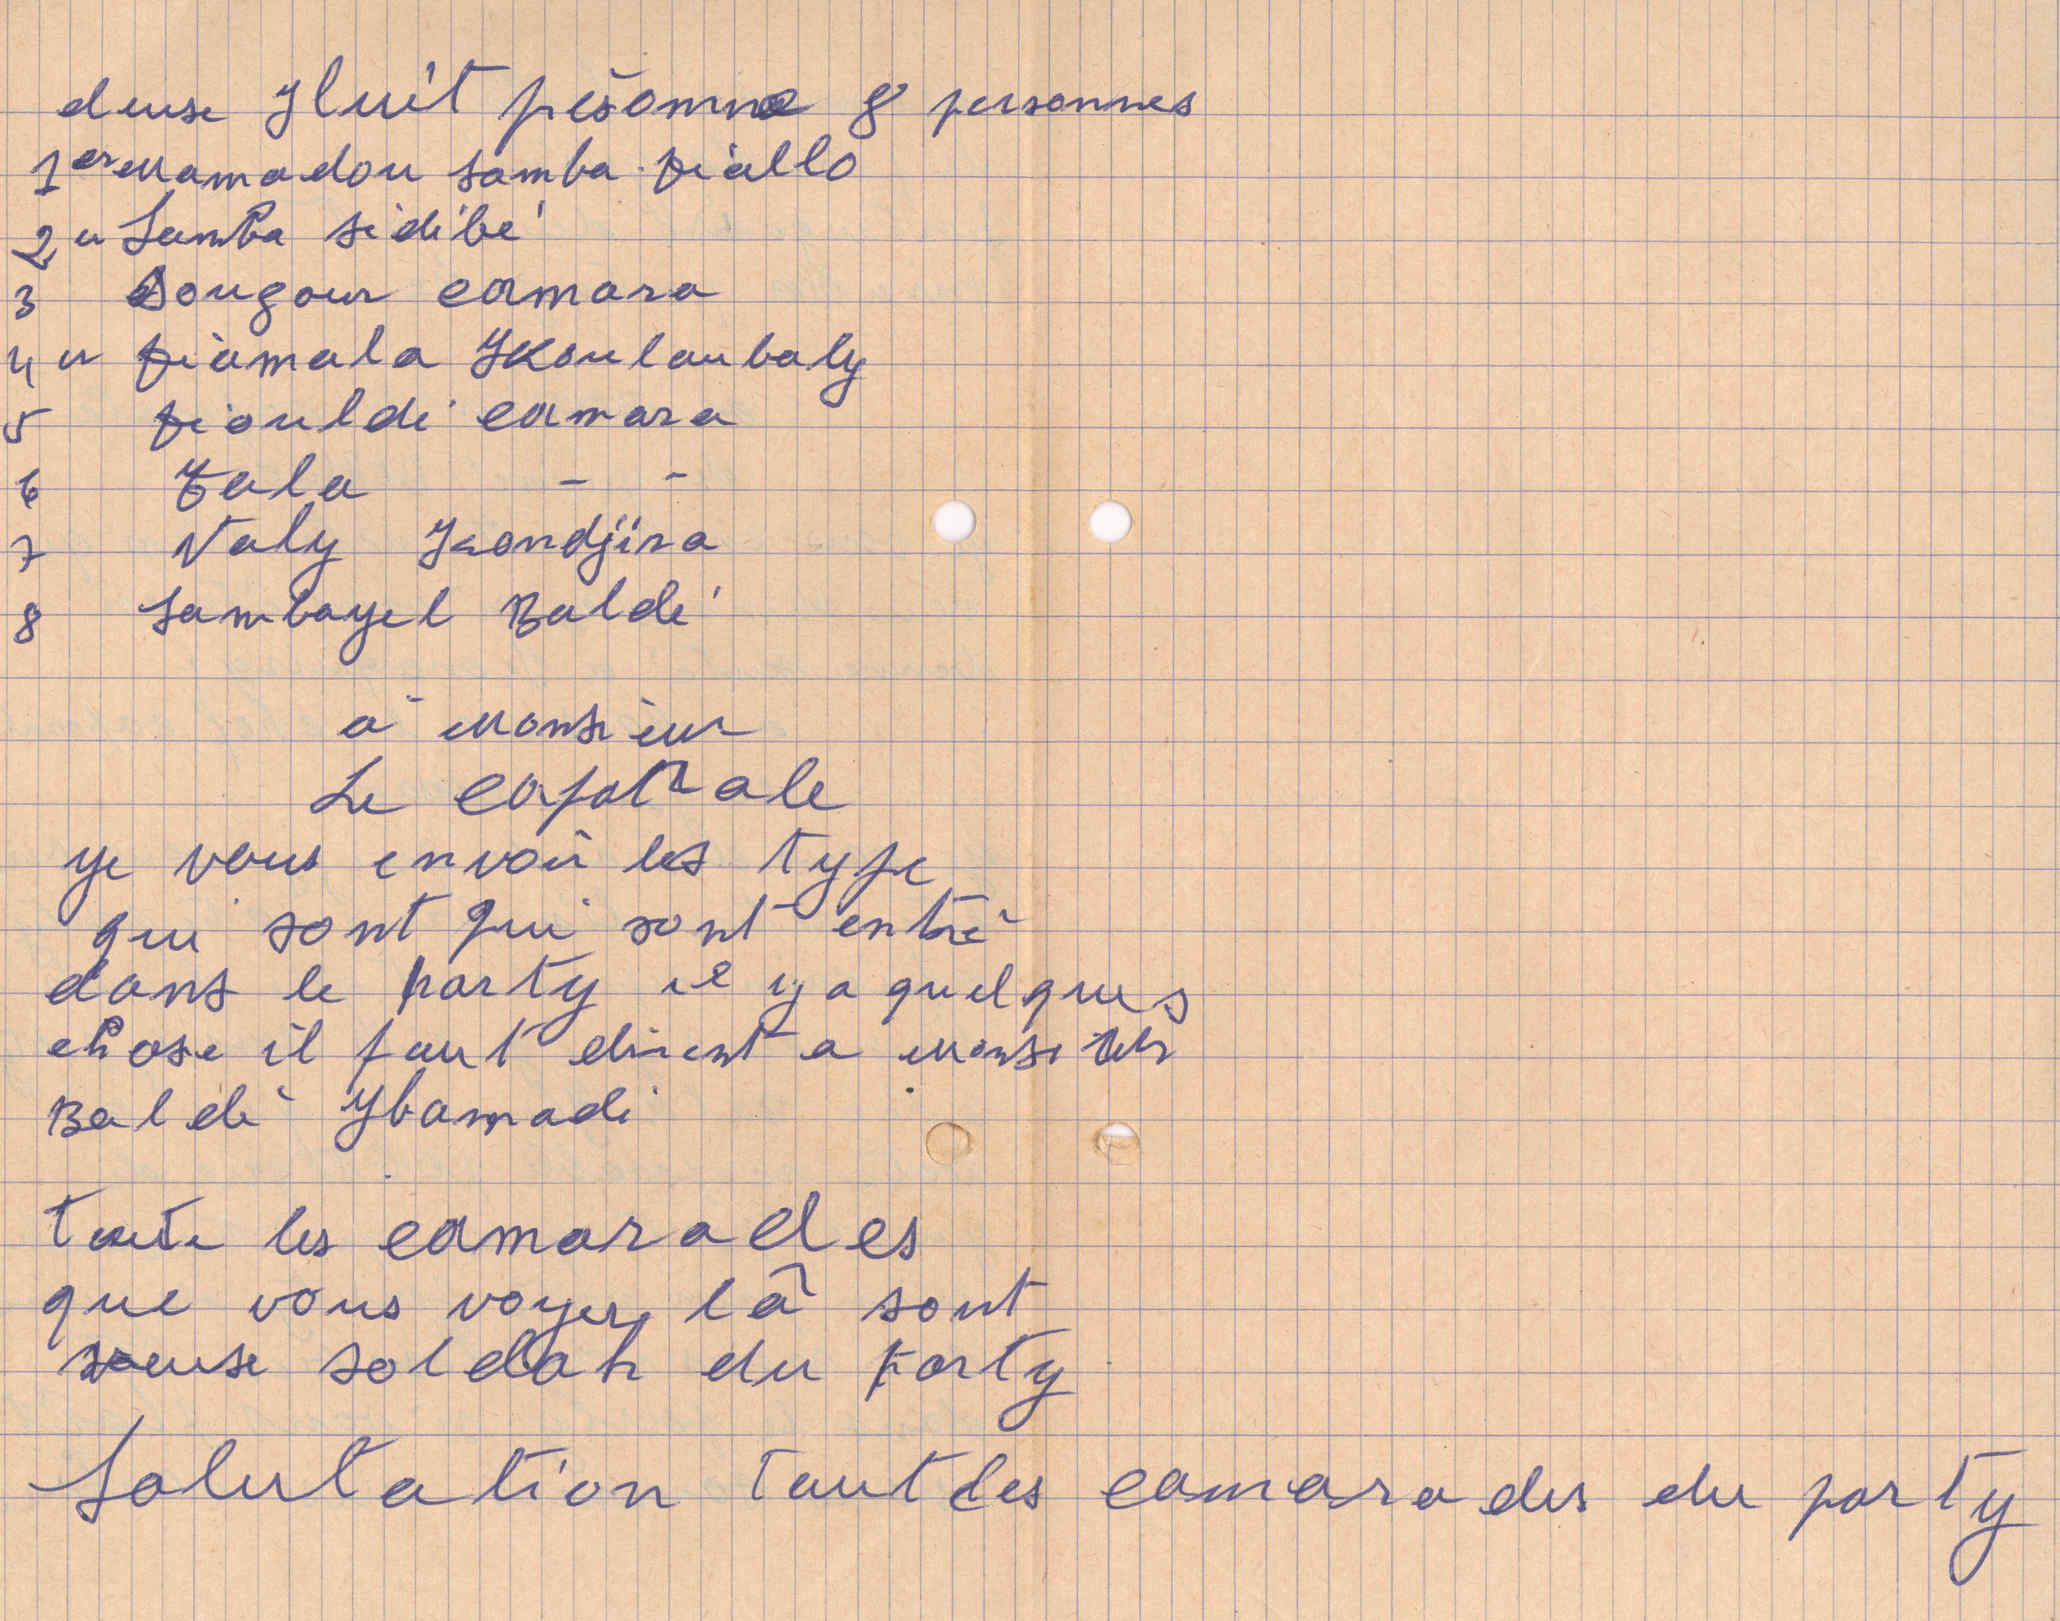 deuse Yluit pesomne 8 personnes
1er Mamadou Samba Diallo
2 u Samba sidibé
3 Sougour camara
4 u Diamala Koulaubaly
5 Diouldi camara
6 Tala - -
7 Valy Kondjira
8 Sambayel Baldé
a Monsieur
Le caporale
ye vous envoii les type
qui sont qui sont entré
dans le party il y a quelques
chose il faut dirent a Monsieur
Baldé Ybamadi
toute les camarades
que vous voyer là sont
soldats du party
Salutation tout les camarades du party